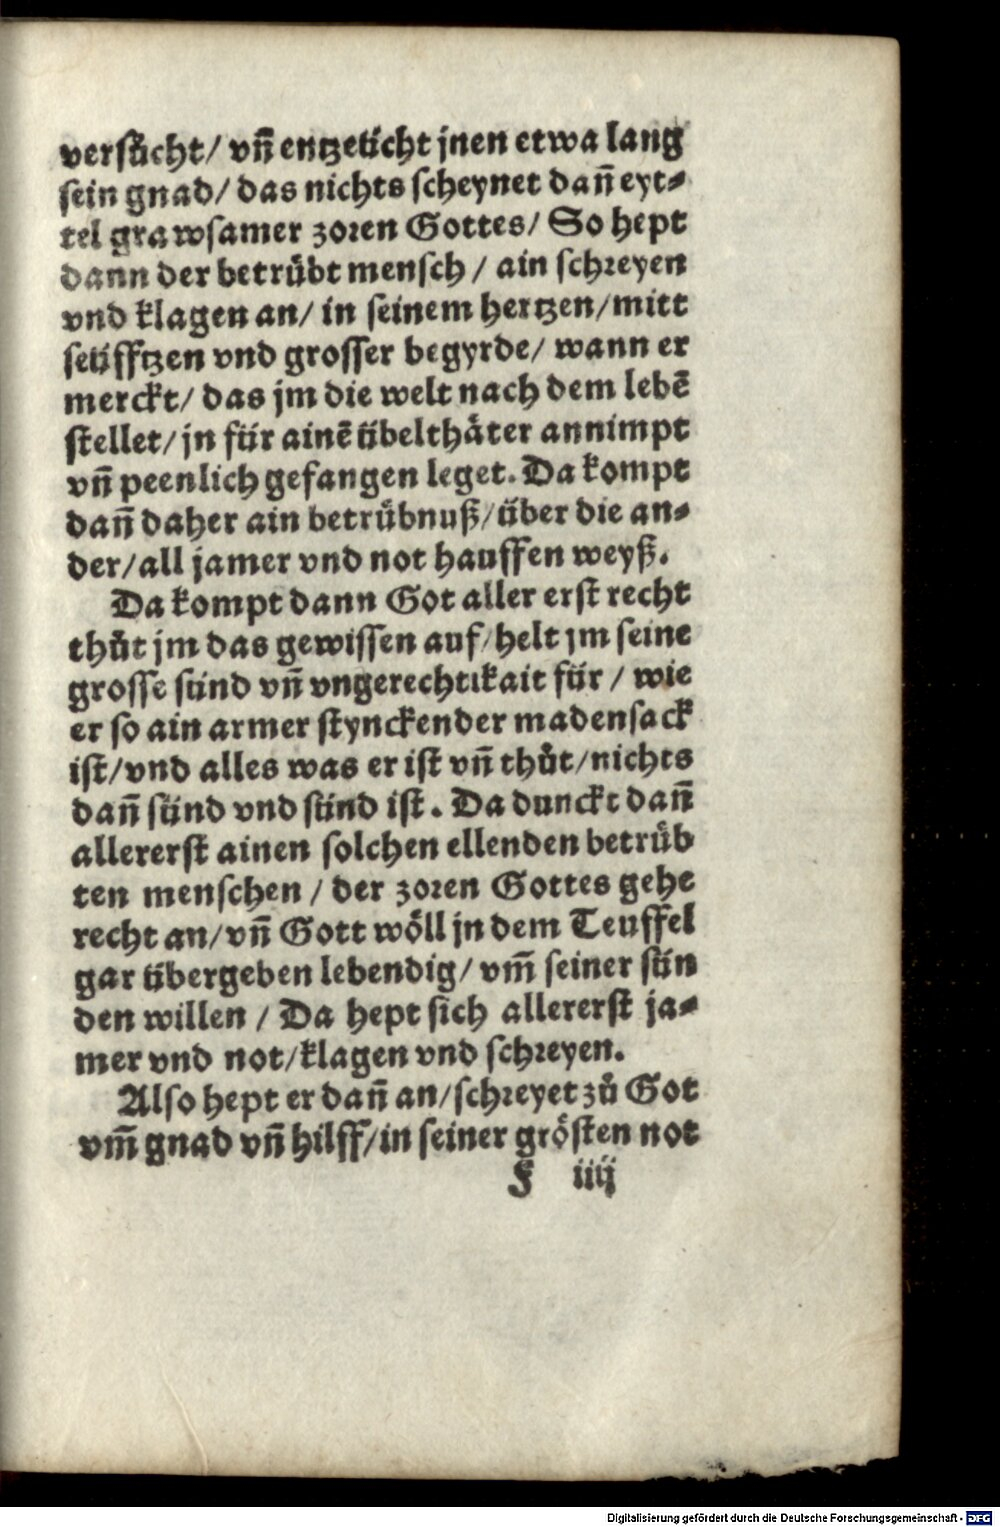 versůcht/ vñ entzeücht jnen etwa lang
sein gnad/ das nichts scheynet dañ eyt⸗
tel grawsamer zoren Gottes/ So hept
dann der betrübt mensch / ain schreyen
vnd klagen an/ in seinem hertzen/ mitt
seüfftzen vnd grosser begyrde/ wann er
merckt/ das jm die welt nach dem lebē
stellet/ jn für ainē übelthäter annimpt
vñ peenlich gefangen leget. Da kompt
dañ daher ain betrübnuß/ über die an⸗
der/ all jamer vnd not hauffen weyß.
Da kompt dann Got aller erst recht
thůt jm das gewissen auf/ helt jm seine
grosse sünd vñ vngerechtikait für / wie
er so ain armer stynckender madensack
ist/ vnd alles was er ist vñ thůt/ nichts
dañ sünd vnd sünd ist. Da dunckt dañ
allererst ainen solchen ellenden betrüb
ten menschen / der zoren Gottes gehe
recht an/ vñ Gott wöll jn dem Teuffel
gar übergeben lebendig/ vm̃ seiner sün
den willen / Da hept sich allererst ja⸗
mer vnd not/ klagen vnd schreyen.
Also hept er dañ an/ schreyet zů Got
vm̃ gnad vñ hilff/ in seiner grösten not
F iiij
Digitalisierung gefördert durch die Deutsche Forschungsgemeinschaft - DFG